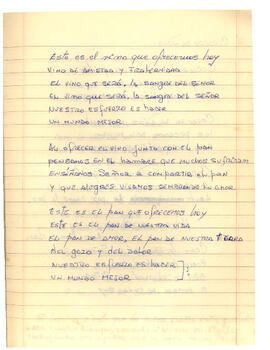 Este es el vino que ofrecemos hoy
Vino de amistad y fraternidad
El vino que será, la sangre del señor
El vino que será, la sangre del señor
Nuestro esfuerzo es hacer
un mundo mejor
Al ofrecer el vino junto con el pan
pensemos en el hambre que muchos sufriran
Enséñanos Señor a compartir el pan
y que alegres vivamos sembrando tu amor
Este es el pan que ofrecemos hoy
Este es el pan de nuestra vida
El pan de amor, el pan de nuestra tierra
del gozo y del dolor
Nuestro esfuerzo es hacer
un mundo mejor